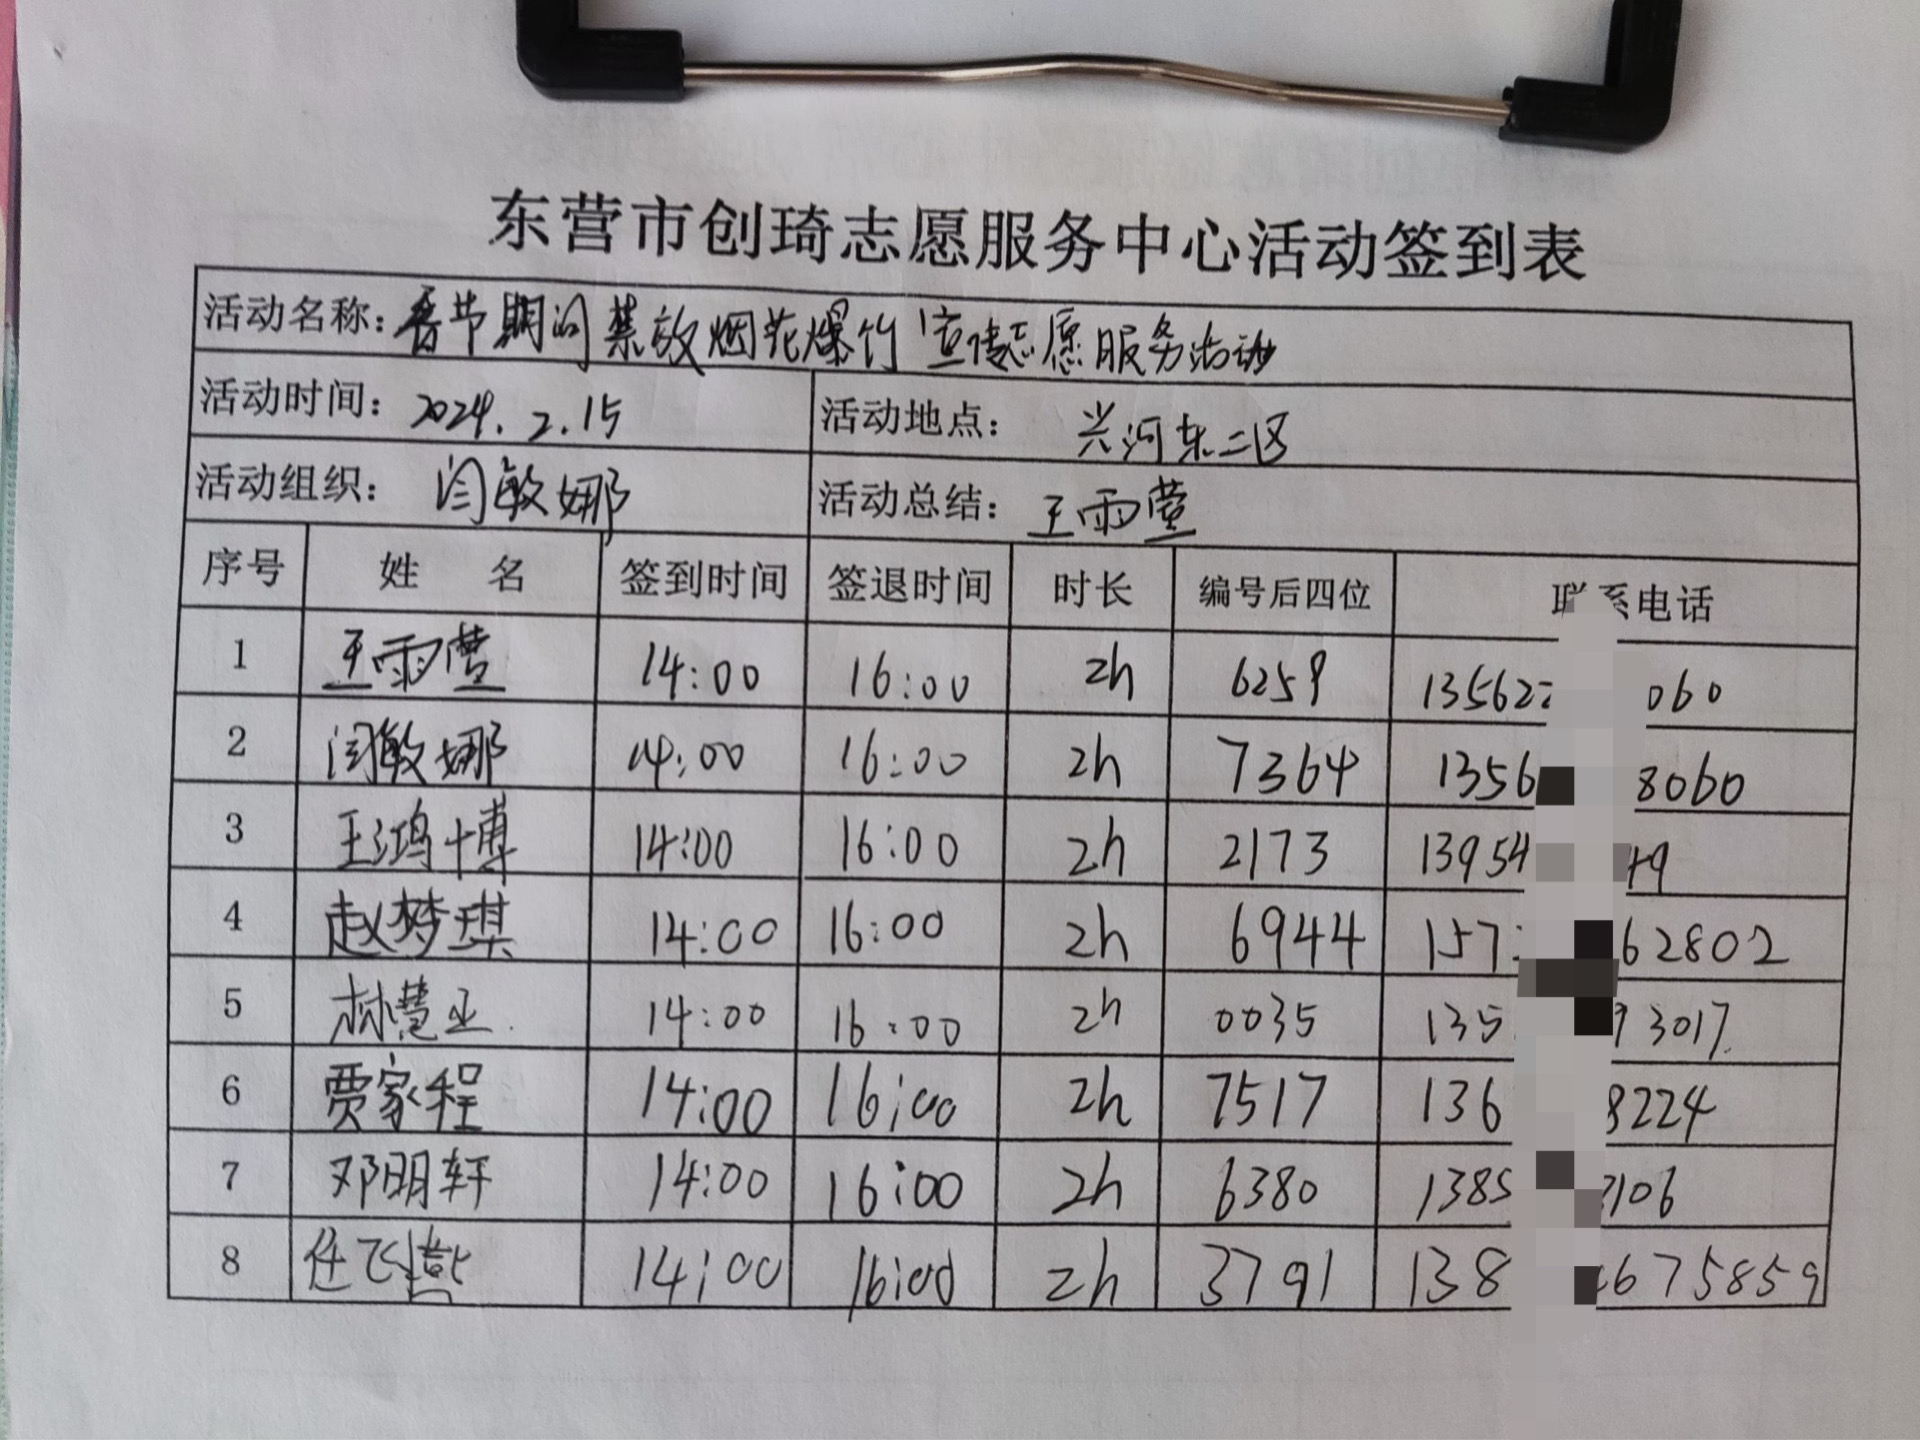 东营市创琦志愿服务中心活动签到表
活动名称：春节期间禁放烟花爆竹宣传志愿服务活动
活动时间：2024.2.15 活动地点：兴河东二区
活动组织：闫敏娜 活动总结：王雨萱
序号 姓名 签到时间 签退时间 时长 编号后四位 联系电话
1 王雨萱 14:00 16:00 2h 6259 135622 060
2 闫敏娜 14:00 16:00 2h 7364 1356 8060
3 王鸿博 14:00 16:00 2h 2173 13954 49
4 赵梦琪 14:00 16:00 2h 6944 157 62802
5 林慧亚 14:00 16:00 2h 0035 135 93017
6 贾家程 14:00 16:00 2h 7517 136 8224
7 邓明轩 14:00 16:00 2h 6380 1385 2106
8 任飞 14:00 16:00 2h 3791 138 675859